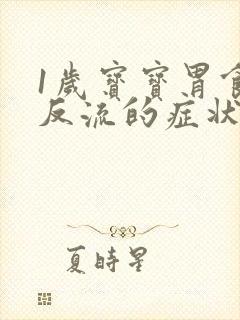 1歲寶寶胃食
反流的症狀
夏時星